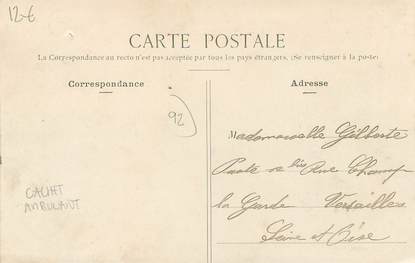 12-€
CARTE POSTALE
La Correspondance au recto n'est pas acceptée par tous les pays étrangers. (Se renseigner à la poste)
Correspondance
Adresse
92
Mademoiselle Gilberte
bis Rue Champ
la Garde Versailles
Seine et Oise
CACHET
AMBULANT